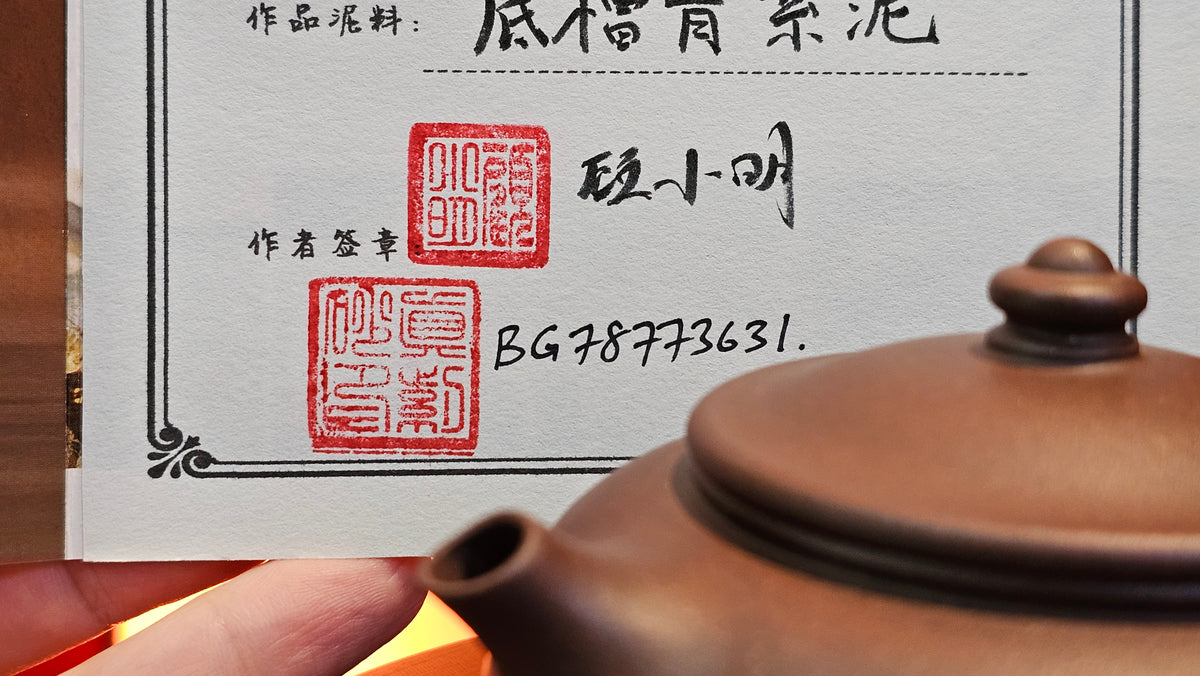 作品泥料: 底槽青紫泥
顧小明
顾小明
作者签章:
BG78773631.